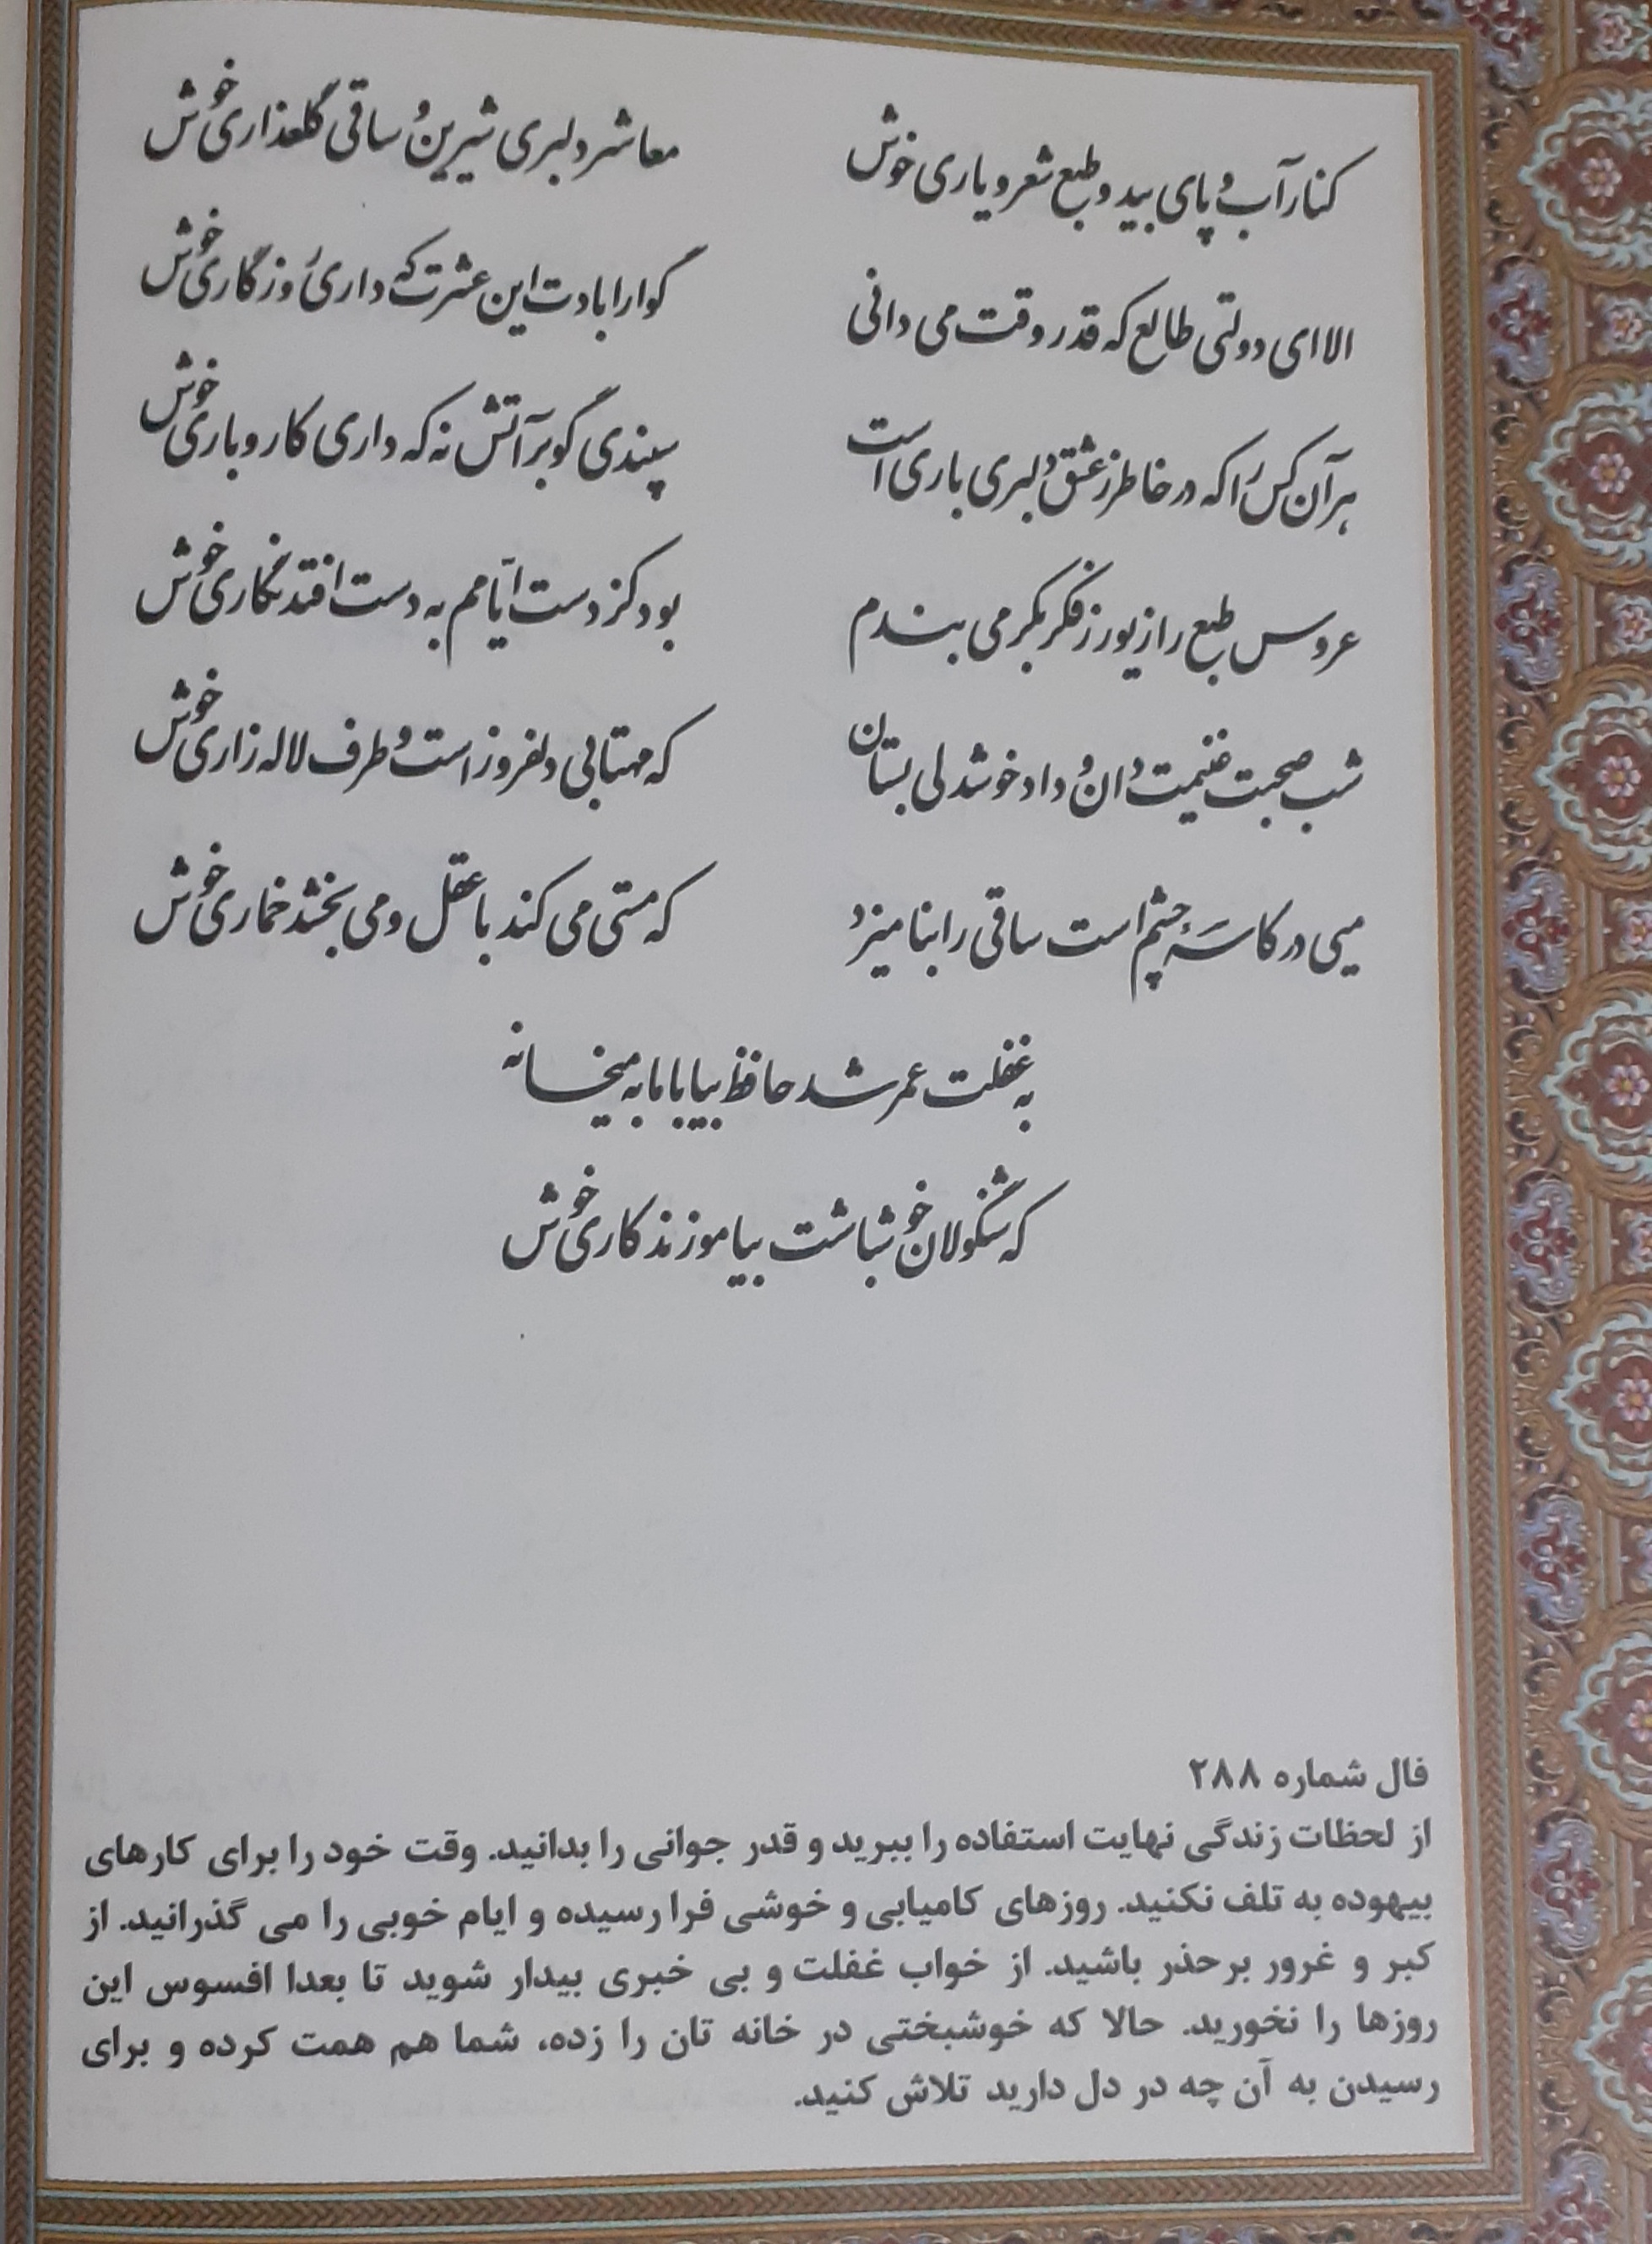 کنار آب و پای بید و طبع شعر و یاری خوش
معاشر دلبری شیرین و ساقی گلعذاری خوش
الا ای دولتی طالع که قدر وقت می دانی
گوارا بادت این عشرت که داری روزگاری خوش
هر آن کس را که در خاطر ز عشق دلبری باری است
سپندی گو بر آتش نه که داری کار و باری خوش
عروس طبع را زیور ز فکر بکر می بندم
بود کز دست ایامم به دست افتد نگاری خوش
شب صحبت غنیمت دان و داد خوشدلی بستان
که مهتابی دلفروز است و طرف لاله زاری خوش
میی در کاسهٔ چشم است ساقی را بنامیزد
که مستی می کند با عقل و می بخشد خماری خوش
به غفلت عمر شد حافظ بیا با ما به میخانه
که شنگولان خوشباشت بیاموزند کاری خوش
فال شماره ۲۸۸
از لحظات زندگی نهایت استفاده را ببرید و قدر جوانی را بدانید. وقت خود را برای کارهای
بیهوده به تلف نکنید. روزهای کامیابی و خوشی فرا رسیده و ایام خوبی را می گذرانید. از
کبر و غرور برحذر باشید. از خواب غفلت و بی خبری بیدار شوید تا بعدا افسوس این
روزها را نخورید. حالا که خوشبختی در خانه تان را زده، شما هم همت کرده و برای
رسیدن به آن چه در دل دارید تلاش کنید.